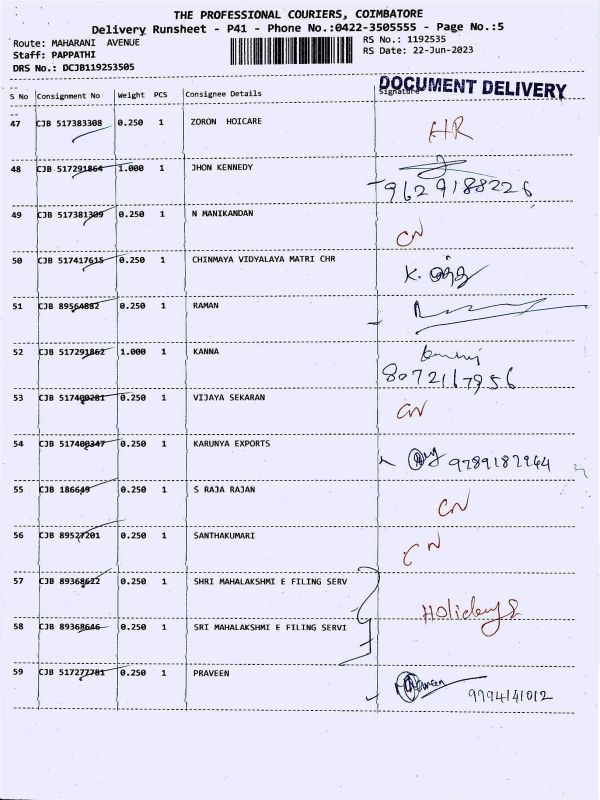 THE PROFESSIONAL COURIERS, COIMBATORE
Delivery Runsheet - P41 - Phone No.:0422-3505555 - Page No.:5
Route: MAHARANI AVENUE
RS No.: 1192535
Staff: PAPPATHI
RS Date: 22-Jun-2023
DRS No.: DCJB119253505
DOCUMENT DELIVERY
S No Consignment No Weight PCS Consignee Details Signature
47 CJB 517383308 0.250 1 ZORON HOICARE HR
48 CJB 517291864 1.000 1 JHON KENNEDY
9629188226
49 CJB 517381309 0.250 1 N MANIKANDAN CN
50 CJB 517417615 0.250 1 CHINMAYA VIDYALAYA MATRI CHR K.
51 CJB 89564882 0.250 1 RAMAN
52 CJB 517291862 1.000 1 KANNA
8072167956
53 CJB 517400281 0.250 1 VIJAYA SEKARAN CN
54 CJB 517400347 0.250 1 KARUNYA EXPORTS 9789187964
55 CJB 186649 0.250 1 S RAJA RAJAN CN
56 CJB 89527201 0.250 1 SANTHAKUMARI CN
57 CJB 89368622 0.250 1 SHRI MAHALAKSHMI E FILING SERV
Holidays
58 CJB 89368646 0.250 1 SRI MAHALAKSHMI E FILING SERVI
59 CJB 517277781 0.250 1 PRAVEEN Praveen 9794141012